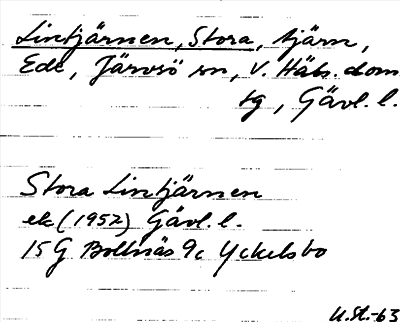 Lintjärnen, Stora, tjärn,
Ede, Järvsö sn, V. Häls. dom
sg, Gävl. l.
Stora Lintjärnen
ek (1952) Gävl. l.
15 G Bollnäs 9c Yckelsbo
U.St.-63